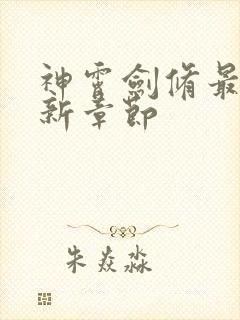 神霄劍脩最
新章節
朱焱淼